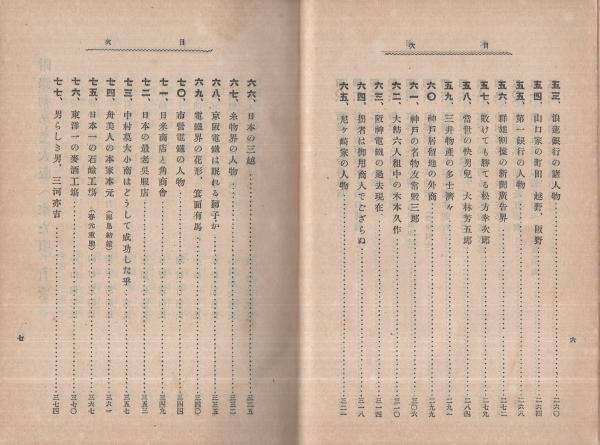 目次
五三、浪速銀行の諸人物……二六〇
五四、山口家の町田、越野、阪野……二六四
五五、第一銀行の人物……二六八
五六、群雄割據の新聞廣告界……二七二
五七、敗けても勝てる松方幸次郎……二七九
五八、當世の快男兒、大林芳五郎……二八五
五九、三井物産の多士濟々……二九一
六〇、神戸居留地の外商……二九九
六一、神戸の名物友常毅三郎……三〇六
六二、大紡六人組中の木本久作……三一〇
六三、阪神電鐵の過去現在……三一四
六四、拙者は御用商人でござらぬ……三一八
六五、尼ヶ崎家の人物……三二一
六
目次
六六、日本の三越……三二五
六七、糸物界の人物……三三二
六八、京阪電鐵は眠れる獅子か……三三五
六九、電鐵界の花形、箕面有馬……三四〇
七〇、市營電鐵の人物……三四四
七一、日米商店と角商會……三四九
七二、日本の最老吳服店……三五三
七三、中村萬太小南はどうして成功した乎……三五七
七四、舟美人の本家本元(福島紡績)……三六一
七五、日本一の石鹼工塲(春元重助)……三六七
七六、東洋一の麥酒工塲……三七〇
七七、男らしき男、三河亦吉……三七四
七